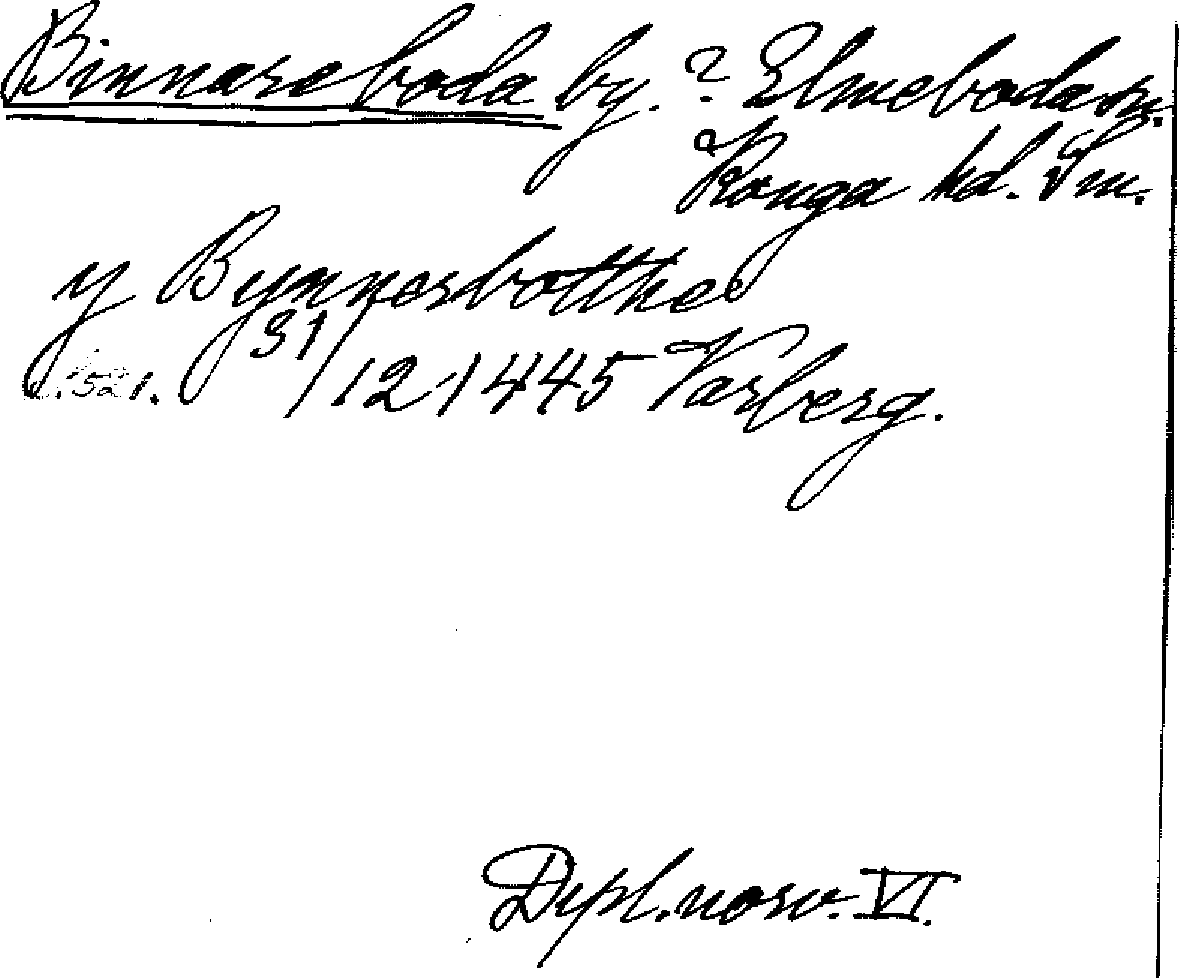 Binnareboda by. ? Elmeboda sn.
Konga hd. Sm.
y Bynnerbotthe
31/12 1445 Varberg.
s. 521.
Dipl. norv. VI.